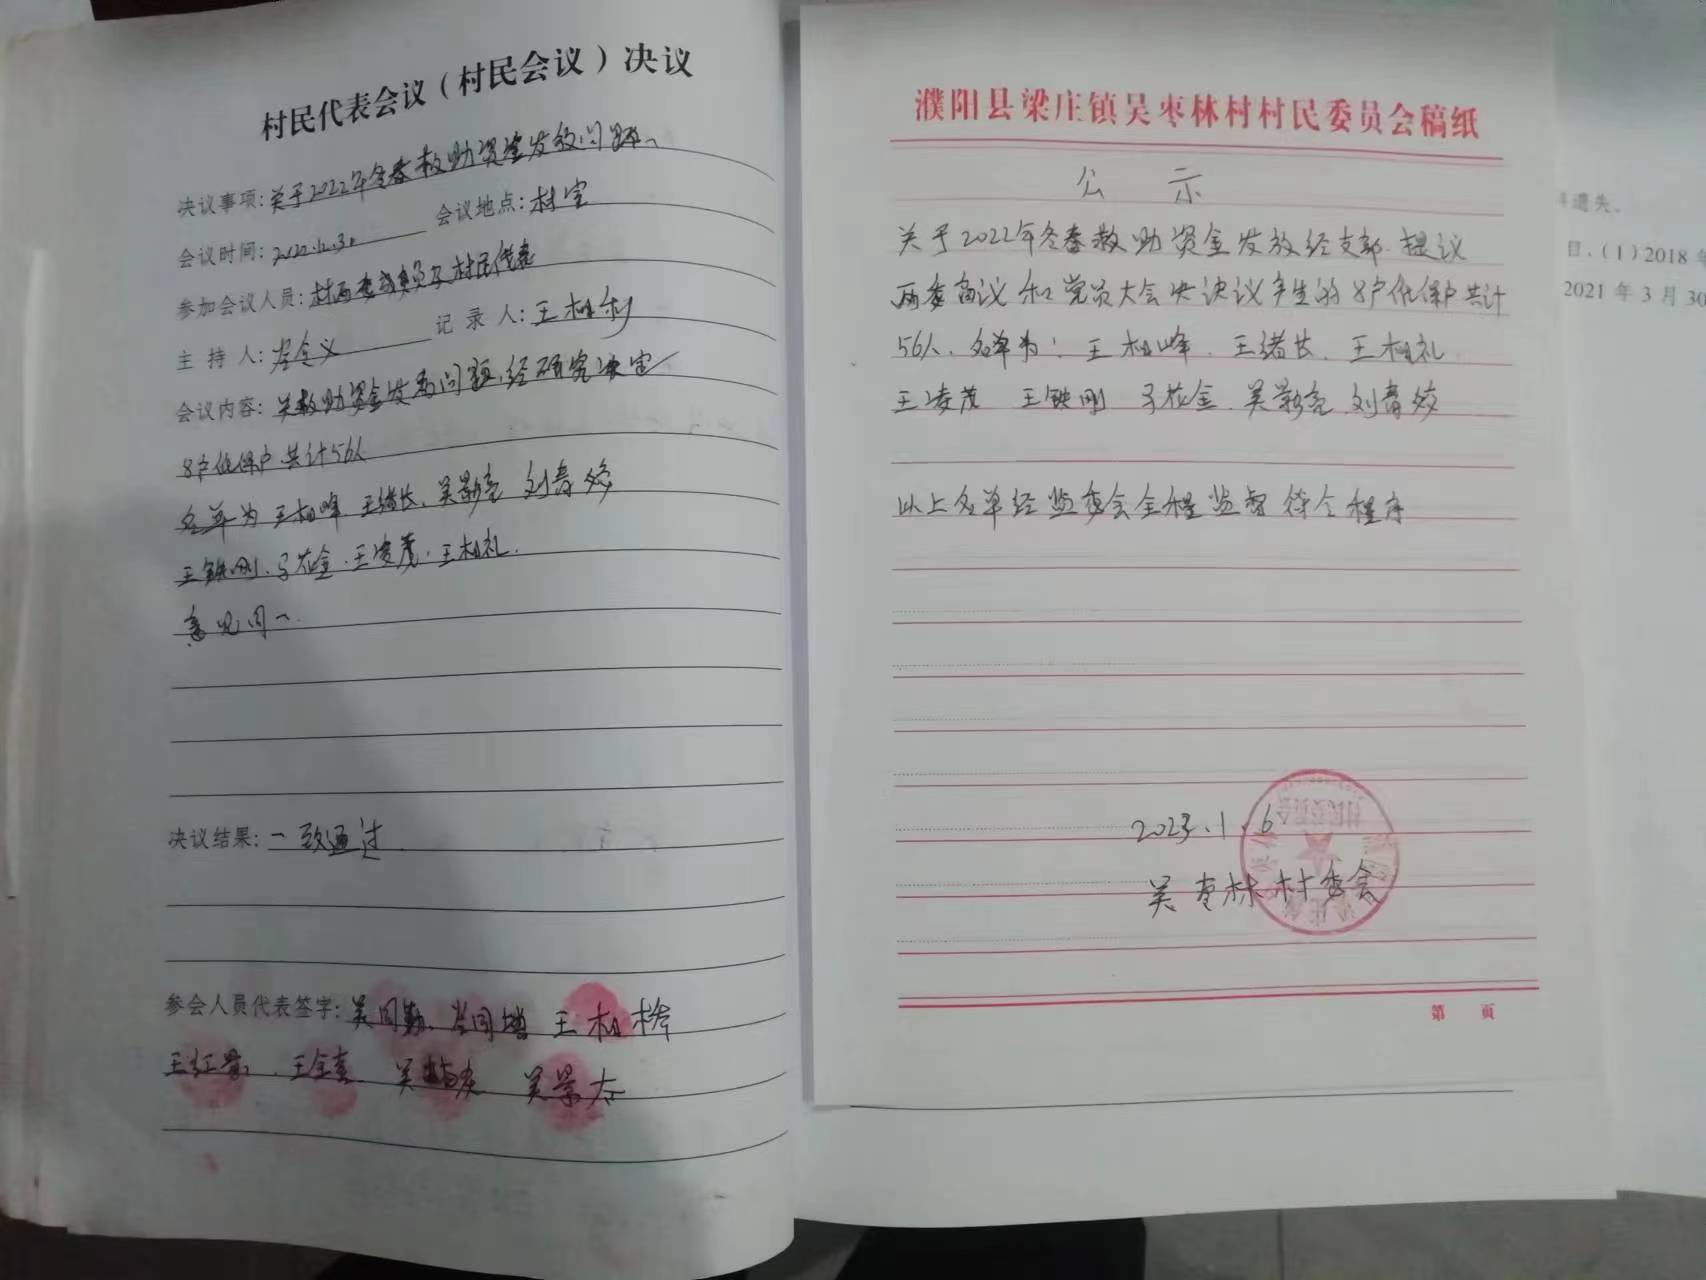 村民代表会议（村民会议）决议
决议事项：关于2022年冬春救助资金发放问题、
会议时间：2022.12.30 会议地点：村室
参加会议人员：村两委成员及村民代表
主 持 人： 记 录 人：王相利
会议内容：关救助资金发放问题、经研究决定
8户低保户共计56人
名单为王相峰 王绪长、吴彰亮 刘春姣
王铁刚、马花金、王凌茂、王相礼.
意见同一.
决议结果：一致通过
参会人员代表签字：吴同勤、 王相
王红 、王全喜 吴 吴景
濮阳县梁庄镇吴枣林村村民委员会稿纸
公 示
关于2022年冬春救助资金发放经支部提议
两委商议和党员大会决决议产生的8户低保户共计
56人、名单为：王相峰、王绪长、王相礼
王凌茂 王铁刚 马花金、吴彰亮 刘春姣
以上名单经监委会全程监督符合程序
2023.1.6
吴枣林村委会
村民委员会
第 页
遗失、
目.（1）2018年
2021年3月30